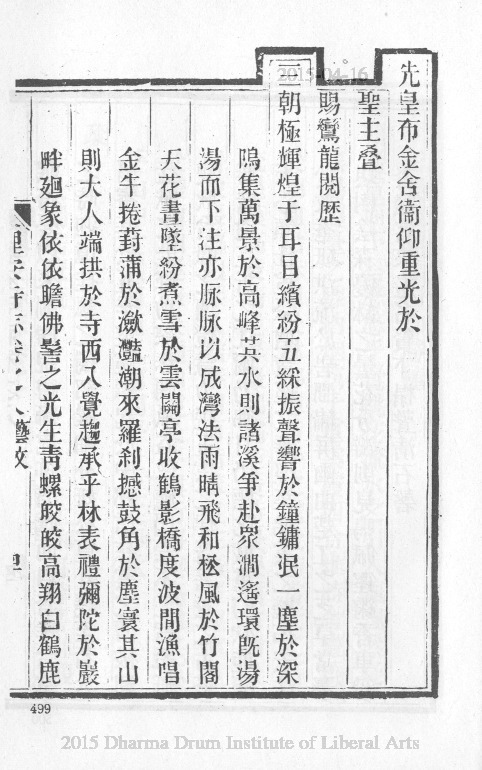 先皇布金舍衞仰重光於
聖主叠
賜鸞龍閱歴
三朝極輝煌于耳目繽紛五綵振聲響於鐘鏞泯一塵於深
隖集萬景於高峰其水則諸溪爭赴衆澗遙環旣湯
湯而下注亦脉脉以成灣法雨晴飛和松風於竹閣
天花晝墜紛煮雪於雲關亭收鶴影橋度波間漁唱
金牛捲葑蒲於瀲灩潮來羅刹撼鼓角於塵寰其山
則大人端拱於寺西八覺趨承乎林表禮彌陀於巖
畔廻象依依瞻佛髻之光生靑螺皎皎高翔白鶴鹿
理安寺志卷之 藝文
499
2015-04-16
2015 Dharma Drum Institute of Liberal Arts